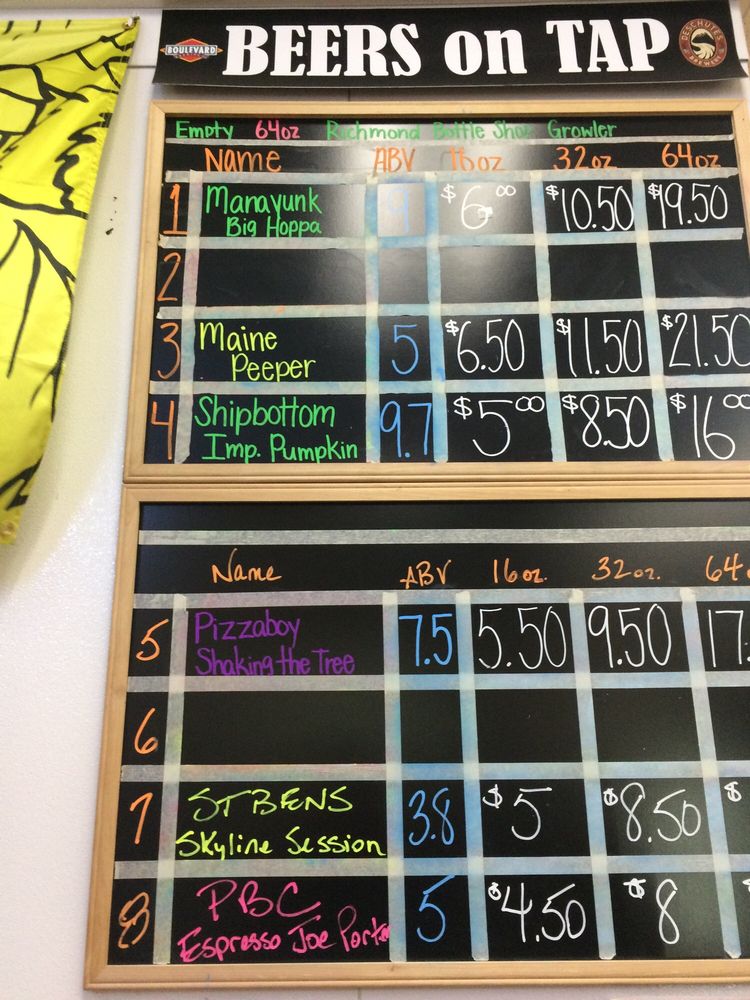 BOULEVARD
BEERS on TAP
DESCHUTES
BREWERY
Empty 64oz Richmond Bottle Shop Growler
Name ABV 16oz 32oz 64oz
1 Manayunk Big Hoppa 9 $6.00 $10.50 $19.50
2
3 Maine Peeper 5 $6.50 $11.50 $21.50
4 Shipbottom Imp. Pumpkin 9.7 $5.00 $8.50 $16.00
Name ABV 16oz. 32oz. 64
5 Pizzaboy Shaking the Tree 7.5 5.50 9.50 17.
6
7 ST BENS Skyline Session 3.8 $5 $8.50 $
8 PBC Espresso Joe Porter 5 $4.50 $8